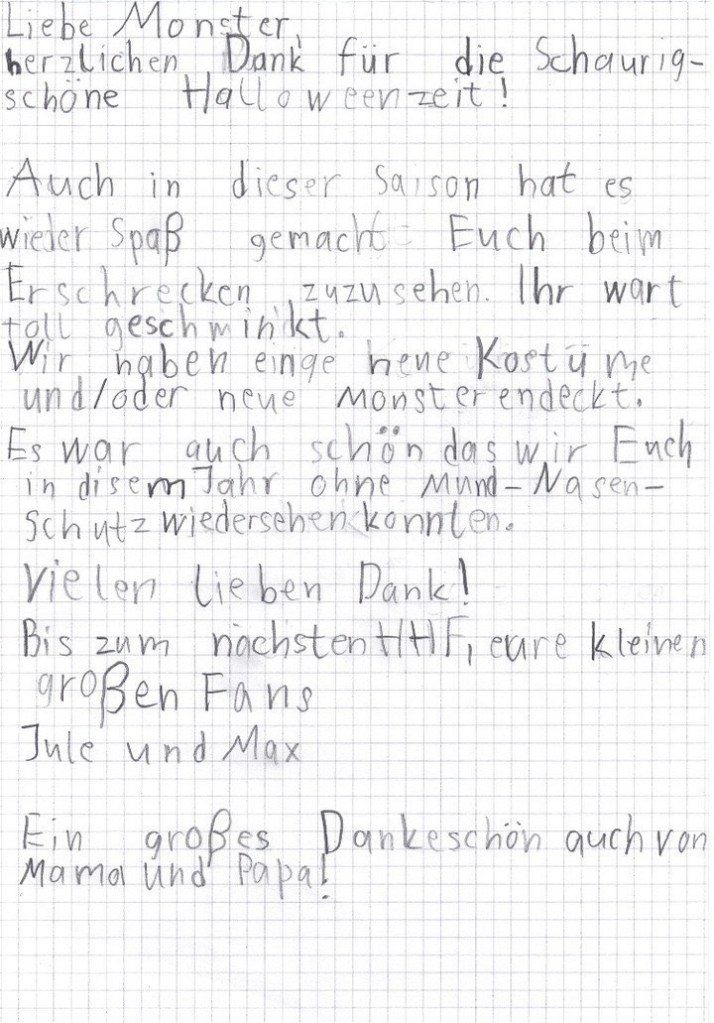 Liebe Monster,
herzlichen Dank für die Schaurig-
schöne Halloweenzeit!
Auch in dieser Saison hat es
wieder Spaß gemacht Euch beim
Erschrecken zuzusehen. Ihr wart
toll geschminkt.
Wir haben einge neue Kostüme
und/oder neue Monster endeckt.
Es war auch schön das wir Euch
in disem Jahr ohne Mund-Nasen-
Schutz wiedersehen konnten.
Vielen lieben Dank!
Bis zum nächsten HHF, eure kleinen
großen Fans
Jule und Max
Ein großes Dankeschön auch von
Mama und Papa!